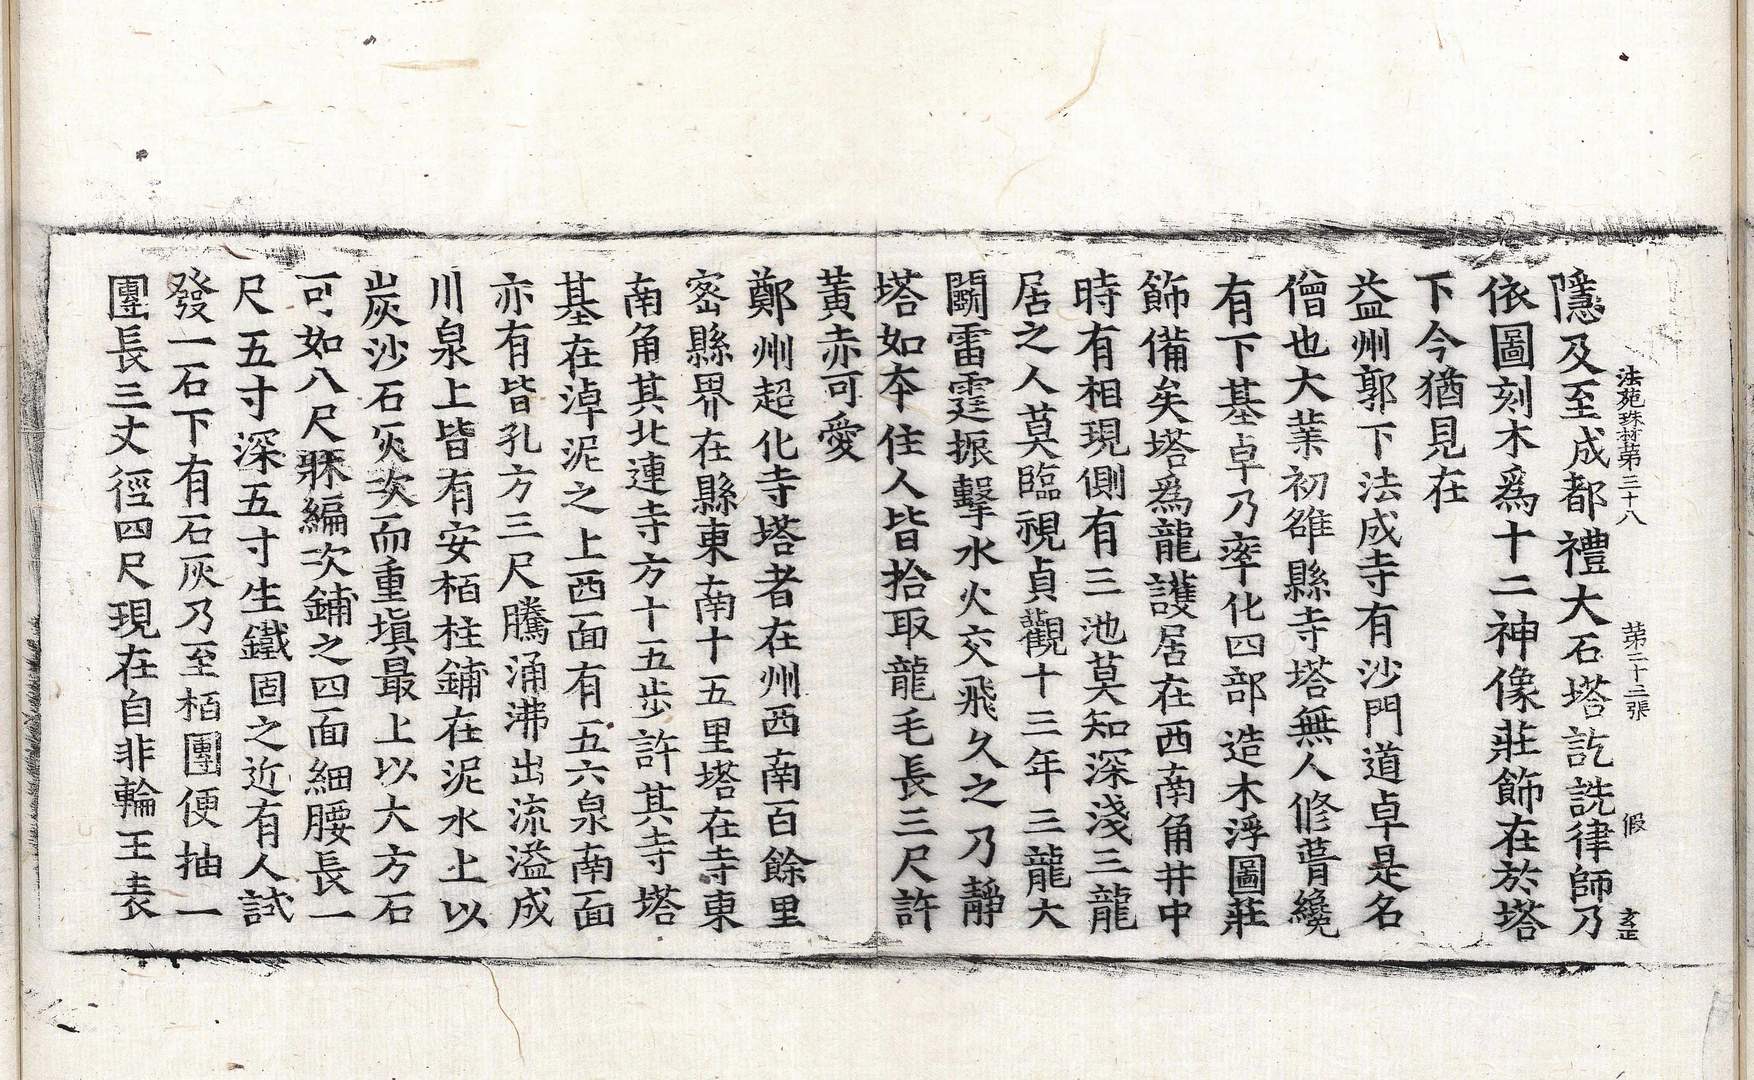 法苑珠林第三十八 第二十三張 假 玄正
隱及至成都禮大石塔訖詵律師乃
依圖刻木爲十二神像莊飾在於塔
下今猶見在
益州郭下法成寺有沙門道卓是名
僧也大業初雒縣寺塔無人修葺纔
有下基卓乃率化四部造木浮圖莊
飾備矣塔爲龍護居在西南角井中
時有相現側有三池莫知深淺三龍
居之人莫臨視貞觀十三年三龍大
鬪雷霆振擊水火交飛久之乃靜
塔如本住人皆拾取龍毛長三尺許
黃赤可愛
鄭州超化寺塔者在州西南百餘里
密縣界在縣東南十五里塔在寺東
南角其北連寺方十五步許其寺塔
基在淖泥之上西面有五六泉南面
亦有皆孔方三尺騰涌沸出流溢成
川泉上皆有安栢柱鋪在泥水上以
炭沙石灰次而重塡最上以大方石
可如八尺牀編次鋪之四面細腰長一
尺五寸深五寸生鐵固之近有人試
發一石下有石灰乃至栢團便抽一
團長三丈徑四尺現在自非輪王表